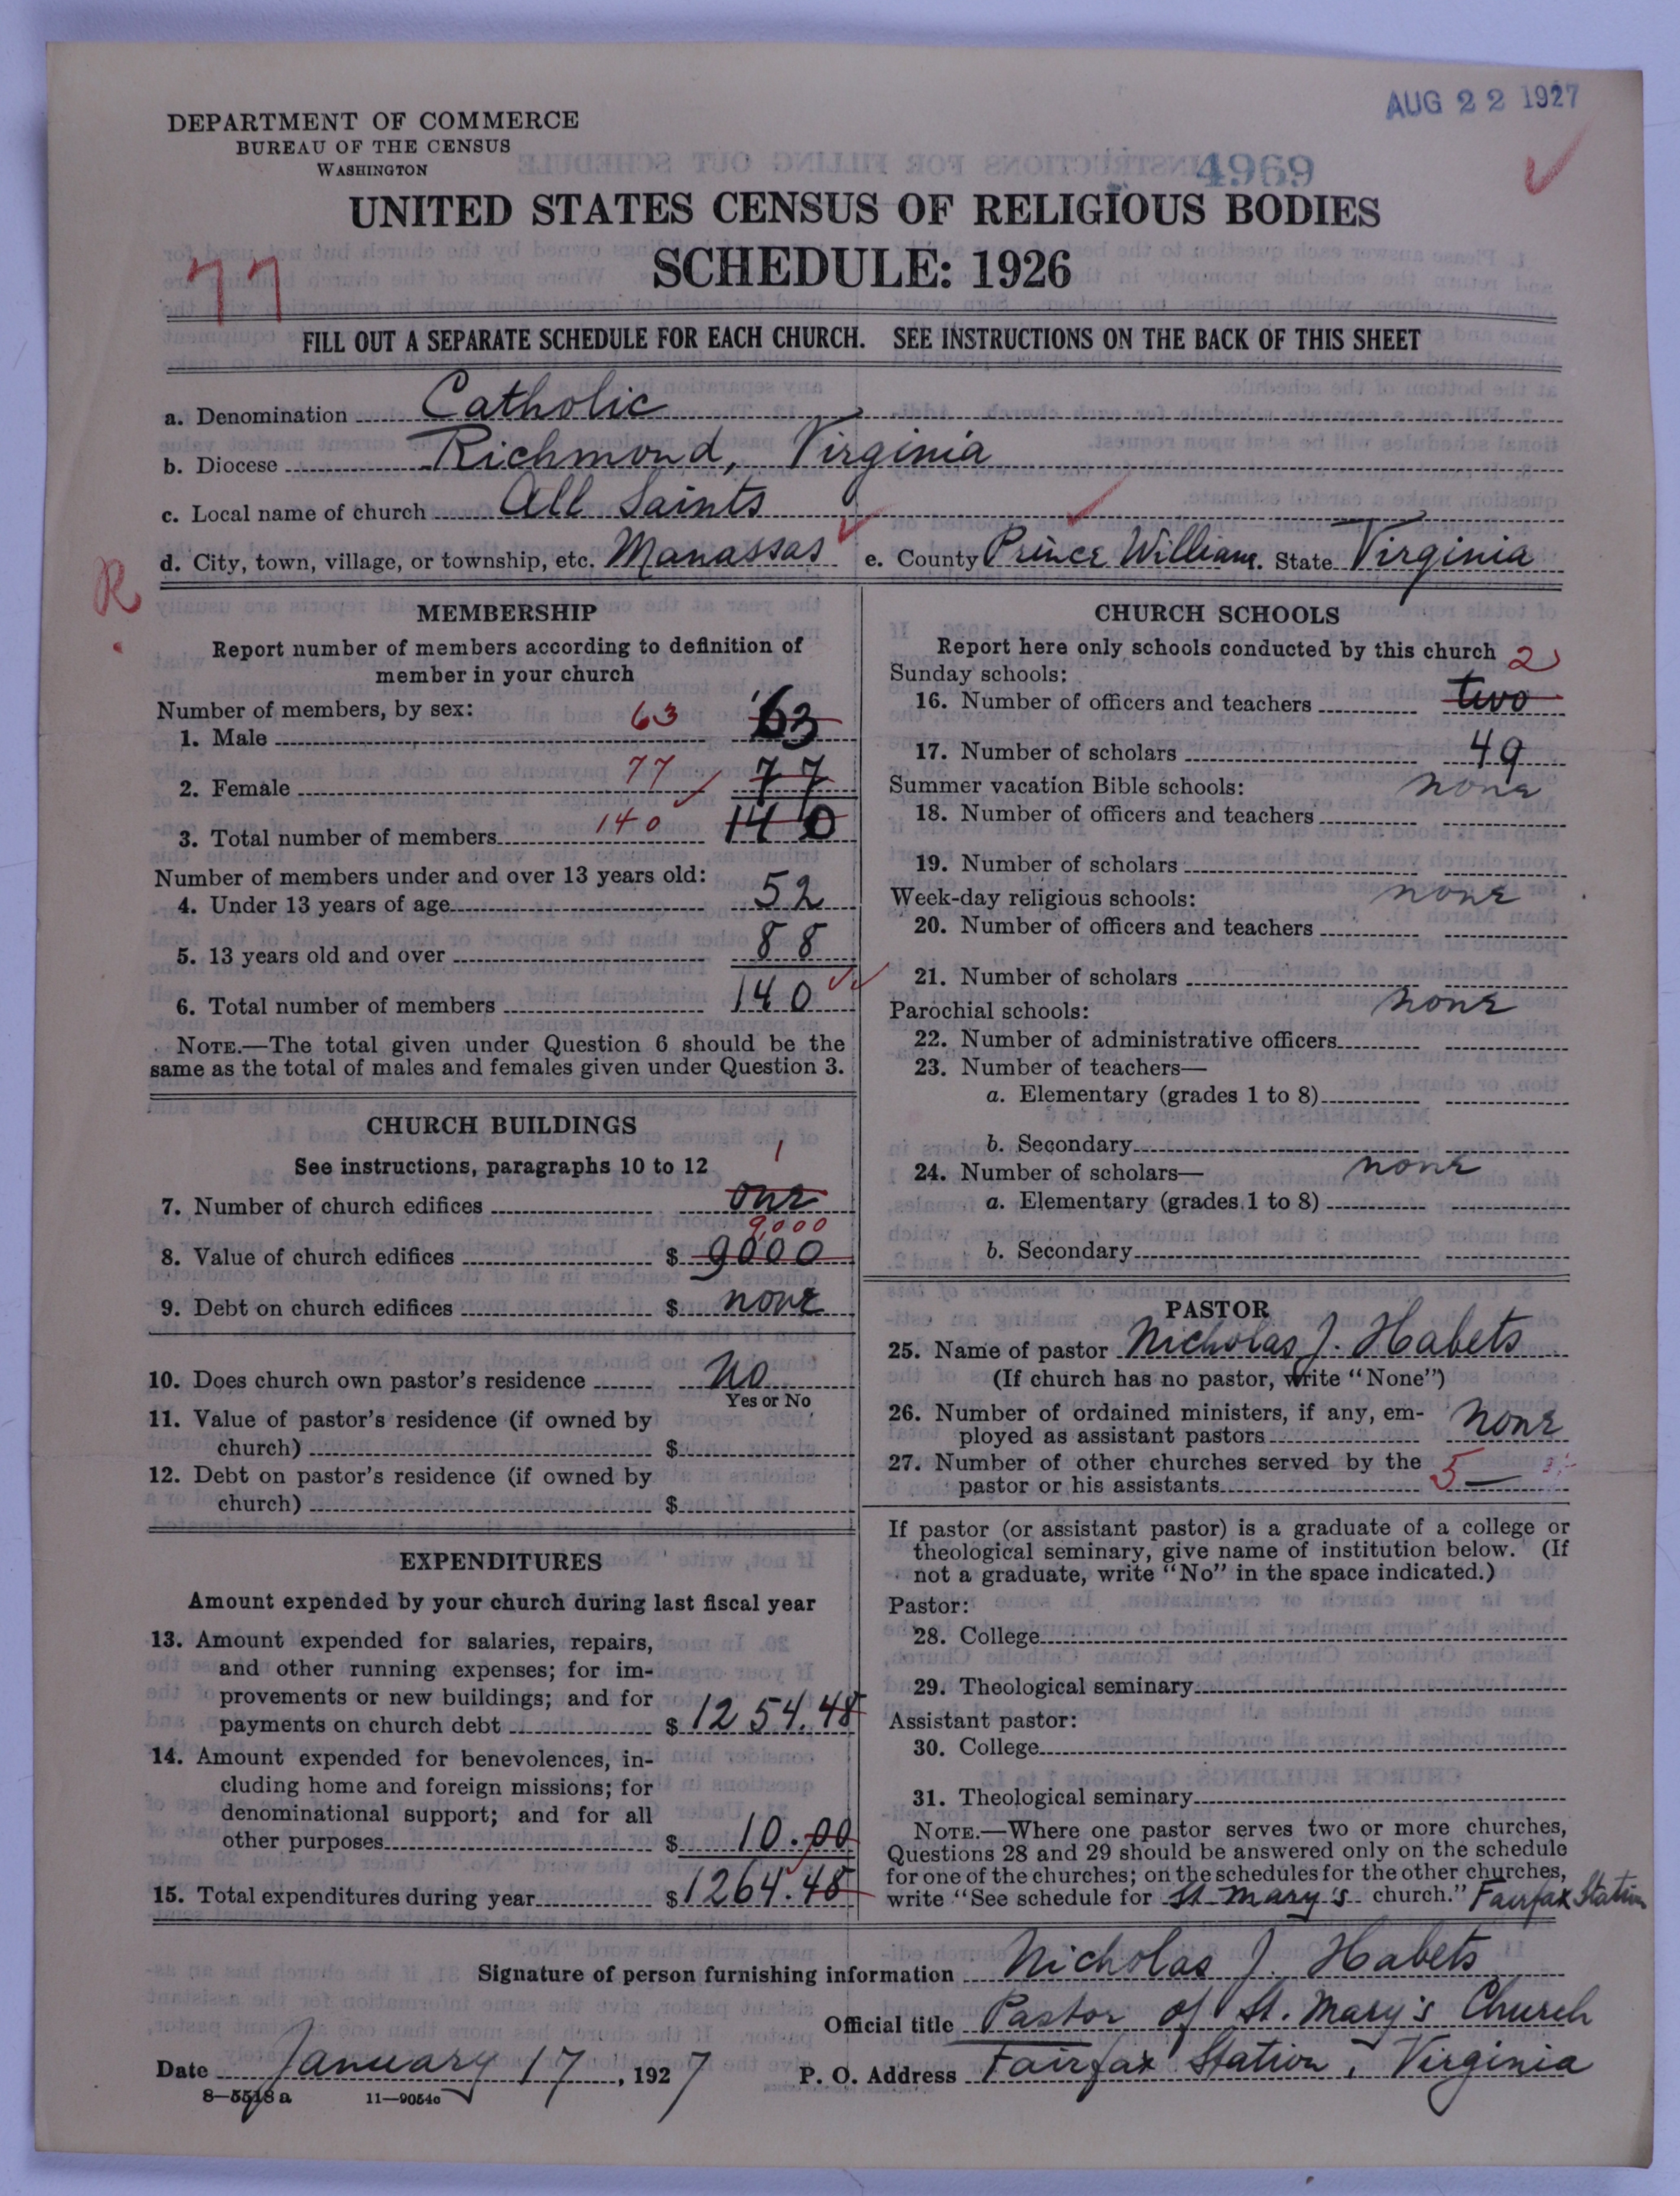 AUG 22 1927
DEPARTMENT OF COMMERCE
BUREAU OF THE CENSUS
WASHINGTON
4969
UNITED STATES CENSUS OF RELIGIOUS BODIES
SCHEDULE: 1926
77
FILL OUT A SEPARATE SCHEDULE FOR EACH CHURCH. SEE INSTRUCTIONS ON THE BACK OF THIS SHEET
a. Denomination Catholic
b. Diocese Richmond, Virginia
c. Local name of church All Saints
d. City, town, village, or township, etc. Manassas e. County Prince William. State Virginia
R.
MEMBERSHIP
Report number of members according to definition of
member in your church
Number of members, by sex:
1. Male 63 63
2. Female 77 77
3. Total number of members 140 140
Number of members under and over 13 years old:
4. Under 13 years of age 52
5. 13 years old and over 88
6. Total number of members 140
NOTE.—The total given under Question 6 should be the
same as the total of males and females given under Question 3.
CHURCH BUILDINGS
See instructions, paragraphs 10 to 12
1
7. Number of church edifices one
9,000
8. Value of church edifices $ 9000
9. Debt on church edifices $ none
10. Does church own pastor's residence No
Yes or No
11. Value of pastor's residence (if owned by
church) $
12. Debt on pastor's residence (if owned by
church) $
EXPENDITURES
Amount expended by your church during last fiscal year
13. Amount expended for salaries, repairs,
and other running expenses; for im-
provements or new buildings; and for
payments on church debt $ 1254.48
14. Amount expended for benevolences, in-
cluding home and foreign missions; for
denominational support; and for all
other purposes $ 10.00
15. Total expenditures during year $ 1264.48
CHURCH SCHOOLS
Report here only schools conducted by this church
Sunday schools: 2
16. Number of officers and teachers two
17. Number of scholars 49
Summer vacation Bible schools: none
18. Number of officers and teachers
19. Number of scholars
Week-day religious schools: none
20. Number of officers and teachers
21. Number of scholars
Parochial schools: none
22. Number of administrative officers
23. Number of teachers—
a. Elementary (grades 1 to 8)
b. Secondary
24. Number of scholars— none
a. Elementary (grades 1 to 8)
b. Secondary
PASTOR
25. Name of pastor Nicholas J. Habets
(If church has no pastor, write "None")
26. Number of ordained ministers, if any, em-
ployed as assistant pastors none
27. Number of other churches served by the
pastor or his assistants 5
If pastor (or assistant pastor) is a graduate of a college or
theological seminary, give name of institution below. (If
not a graduate, write "No" in the space indicated.)
Pastor:
28. College
29. Theological seminary
Assistant pastor:
30. College
31. Theological seminary
NOTE.—Where one pastor serves two or more churches,
Questions 28 and 29 should be answered only on the schedule
for one of the churches; on the schedules for the other churches,
write "See schedule for St. Mary's church." Fairfax Station
Signature of person furnishing information Nicholas J. Habets
Official title Pastor of St. Mary's Church
Date January 17, 1927 P. O. Address Fairfax Station, Virginia
8—5518 a 11—9054c